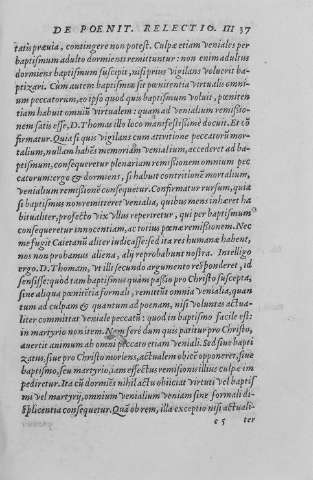 DE POENIT. RELECTIO. III 37
tatis prævia, contingere non potest. Culpæ etiam veniales per
baptismum adulto dormienti remittuntur: non enim adultus
dormiens baptismum suscipit, nisi prius vigilans voluerit ba-
ptizari. Cum autem baptismus sit pœnitentia virtualis omni-
um peccatorum, eo ipso quod quis baptismum voluit, pœniten
tiam habuit omnium virtualem: quam ad venialium remissio-
nem satis esse, D. Thomas illo loco manifestissimè docuit. Et cõ
firmatur. Quia si quis vigilans cum attritione peccatorum mor-
talium, nullam habẽs memoriam venialium, accederet ad ba-
ptismum, consequeretur plenariam remissionem omnium pec
catorum: ergo & dormiens, si habuit contritionẽ mortalium,
venialium remissionẽ consequetur. Confirmatur rursum, quia
si baptismus non remitteret venialia, quibus mens inhæret ha
bitualiter, profecto vix vllus reperiretur, qui per baptismum
consequeretur innocentiam, ac totius pœnæ remissionem. Nec
me fugit Caietanũ aliter iudicasse: sed ita res humanæ habent,
nos non probamus aliena, alij reprobabunt nostra. Intelligo
ergo D. Thomam, vt illi secundo argumento respõderet, id
sensisse: quòd tam baptismus quàm passio pro Christo suscepta,
sine aliqua pœnitẽtia formali, remittũt omnia venialia, quan
tum ad culpam & quantum ad pœnam, nisi voluntas actua-
liter committat veniale peccatũ: quod in baptismo facile est:
in martyrio non item. Nam ferè dum quis patitur pro Christo,
auertit animum ab omni peccato etiam veniali. Sed siue bapti
zatus, siue pro Christo moriens, actualem obicẽ opponeret, siue
baptismo, seu martyrio, iam effectus remissionis illius culpæ im
pediretur. Ita cũ dormiẽs nihil actu obijciat virtuti vel baptis
mi vel martyrij, omnium venialium veniam sine formali di-
splicentia consequetur. Quã ob rem, illa exceptio nisi actuali-
e 5 ter